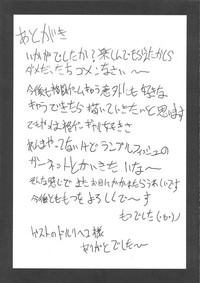 あとがき
いかがでしたか？楽しんでもらえたかしら
ダメだったらゴメンなさい〜
今後も格闘ゲームキャラ意外にも好きな
キャラできたら描いていきたいと思います
あんまやってないけどランブルフィッシュの
ガーネットとかかきたいな〜
そんな感じでまたお目にかかれたらうれしいです
今後とももつをよろしく〜す
もつでした
ゲストのドルリヘコ様
ありがとでした〜